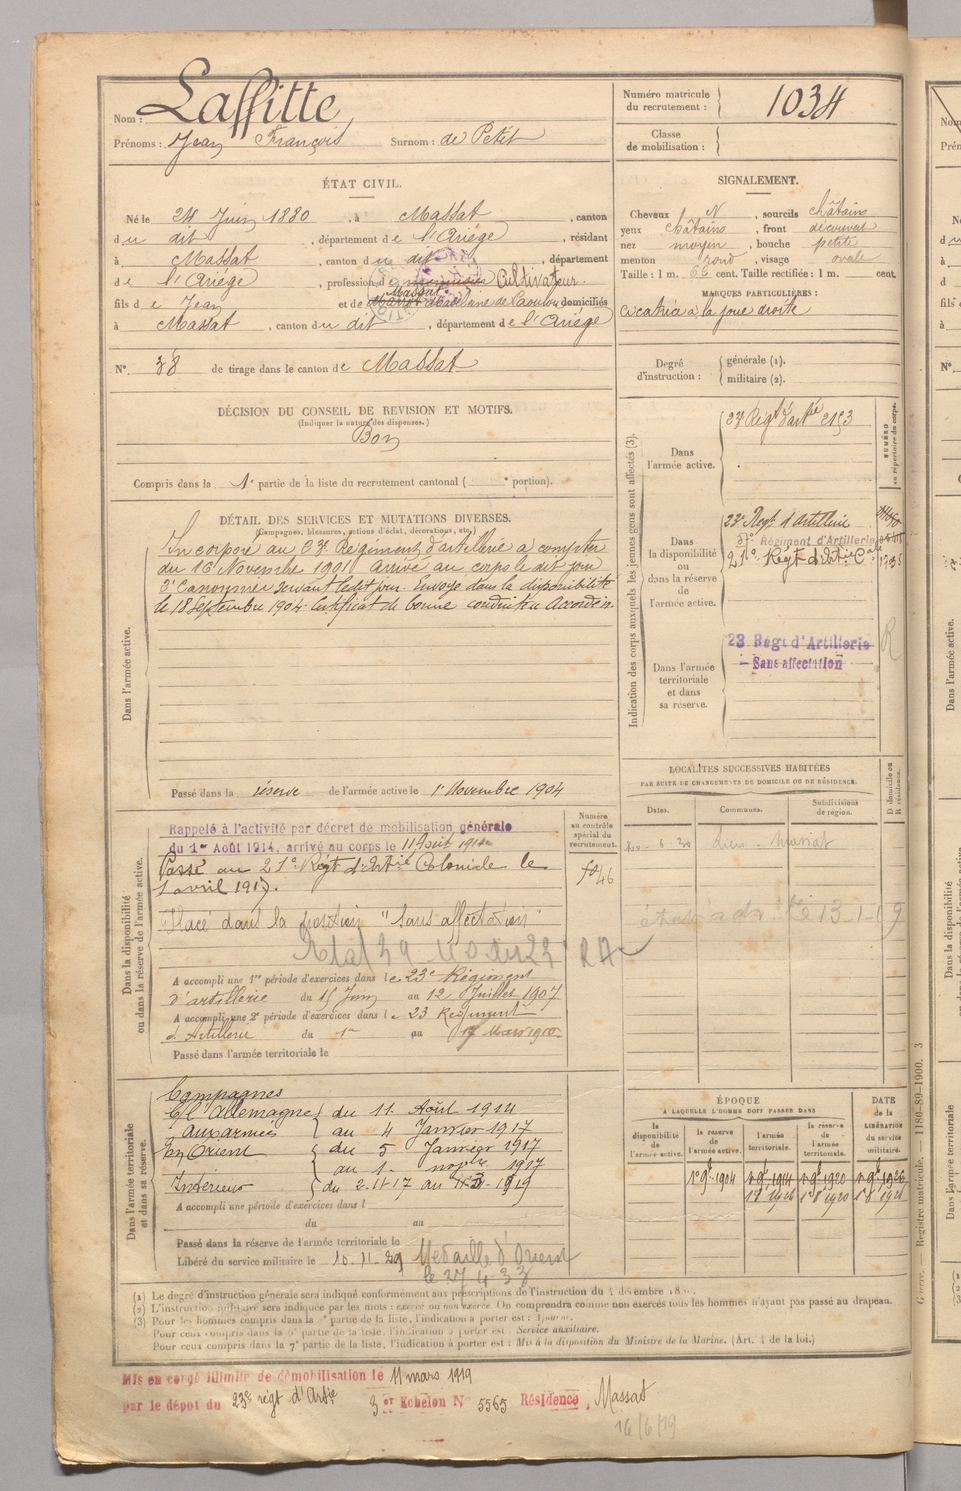 Nom : Laffitte
Prénoms : Jean François Surnom : de Petit
Numéro matricule du recrutement : 1034
Classe de mobilisation :
ÉTAT CIVIL.
Né le 24 Juin 1880, à Massat, canton
du dit, département de l'Ariége, résidant
à Massat, canton du dit, département
de l'Ariége, profession de Cultivateur
fils de Jean et de Massat domiciliés
à Massat, canton du dit, département de l'Ariége
N° 38 de tirage dans le canton de Massat
SIGNALEMENT.
Cheveux N, sourcils châtains
yeux châtains, front découvert
nez moyen, bouche petite
menton rond, visage ovale
Taille : 1 m. 66 cent. Taille rectifiée : 1 m. cent.
MARQUES PARTICULIÈRES :
cicatrice à la joue droite
Degré d'instruction : générale (1). militaire (2).
DÉCISION DU CONSEIL DE REVISION ET MOTIFS.
(Indiquer la nature des dispenses.)
Bon
Compris dans la 1e partie de la liste du recrutement cantonal ( e portion).
DÉTAIL DES SERVICES ET MUTATIONS DIVERSES.
(Campagnes, blessures, actions d'éclat, décorations, etc.)
Dans l'armée active.
Incorporé au 23e Régiment d'artillerie à compter
du 16 Novembre 1901 arrivé au corps le dit jour
2e Canonnier servant le dit jour. Envoyé dans la disponibilité
le 18 Septembre 1904. Certificat de bonne conduite Accordé.
Passé dans la réserve de l'armée active le 1er Novembre 1904
Indication des corps auxquels les jeunes gens sont affectés (3).
NUMÉRO au répertoire du corps.
Dans l'armée active.
23e Régt d'artie 2153
Dans la disponibilité ou dans la réserve de l'armée active.
23e Regt d'Artillerie
Régiment d'Artillerie
21e Régt d'Artie Cale
Dans l'armée territoriale et dans sa réserve.
23 Régt d'Artillerie
- Sans affectation
R
LOCALITÉS SUCCESSIVES HABITÉES
PAR SUITE DE CHANGEMENTS DE DOMICILE OU DE RÉSIDENCE.
Dates. Communes. Subdivisions de région. D domicile ou R résidence.
Dans la disponibilité ou dans la réserve de l'armée active.
Numéro au contrôle spécial du recrutement.
Rappelé à l'activité par décret de mobilisation générale
du 1er Août 1914, arrivé au corps le 11 Août 1914
Passé au 21e Régt d'Artie Coloniale le
1 avril 1917.
Placé dans la position "Sans affectation"
A accompli une 1re période d'exercices dans le 23e Régiment
d'artillerie du 15 Juin au 12 Juillet 1907
A accompli une 2e période d'exercices dans le 23 Régiment
d'Artillerie du 1er au 17 Mars 1910
Passé dans l'armée territoriale le
Dans l'armée territoriale et dans sa réserve.
Campagnes
C/ l'Allemagne du 11 Août 1914
aux armées au 4 Janvier 1917
En Orient du 5 Janvier 1917
au 1er novbre 1917
Intérieur du 2-11-17 au 11-3-1919
A accompli une période d'exercices dans l
du au
Passé dans la réserve de l'armée territoriale le
Libéré du service militaire le 10-11-29 Médaille d'Orient
le 27 4 33
ÉPOQUE
A LAQUELLE L'HOMME DOIT PASSER DANS
la disponibilité de l'armée active. la réserve de l'armée active. l'armée territoriale. la réserve de l'armée territoriale.
DATE de la LIBÉRATION du service militaire.
1er 9bre 1904 1er 9bre 1914 1er 9bre 1920 1er 9bre 1926
(1) Le degré d'instruction générale sera indiqué conformément aux prescriptions de l'instruction du 4 décembre
(2) L'instruction militaire sera indiquée par les mots : exercé ou non exercé. On comprendra comme non exercés tous les hommes n'ayant pas passé au drapeau.
(3) Pour les hommes compris dans la partie de la liste, l'indication à porter est : Ajourné.
Pour ceux compris dans la 6e partie de la liste, l'indication à porter est : Service auxiliaire.
Pour ceux compris dans la 7e partie de la liste, l'indication à porter est : Mis à la disposition du Ministre de la Marine. (Art. 4 de la loi.)
Guerre. Registre matricule. — 1180-89-1900. 3
Mis en congé illimité de démobilisation le 11 mars 1919
par le dépôt du 23e régt d'Artie 3er Echelon N° 5565 Résidence, Massat
16/6/19